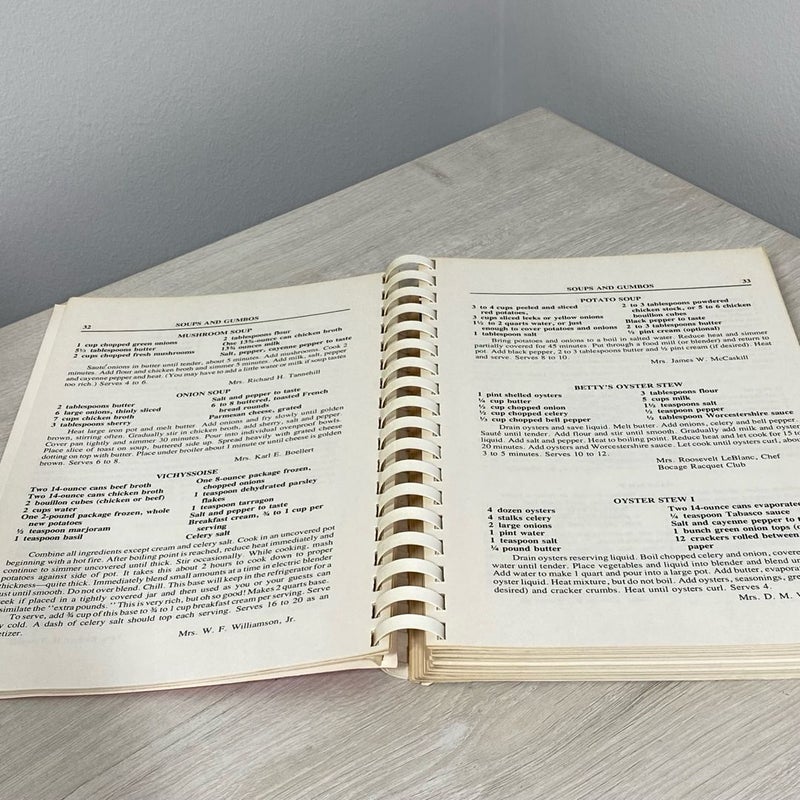 32
SOUPS AND GUMBOS
MUSHROOM SOUP
1 cup chopped green onions
5½ tablespoons butter
2 cups chopped fresh mushrooms
2 tablespoons flour
One 13¾-ounce can chicken broth
13¾ ounces milk
Salt, pepper, cayenne pepper to taste
Sauté onions in butter until tender, about 5 minutes. Add mushrooms. Cook 2
minutes. Add flour and chicken broth and simmer 5 minutes. Add milk, salt, pepper
and cayenne pepper and heat. (You may have to add a little water or milk if soup tastes
too rich.) Serves 4 to 6.
Mrs. Richard H. Tannehill
ONION SOUP
2 tablespoons butter
6 large onions, thinly sliced
7 cups chicken broth
3 tablespoons sherry
Salt and pepper to taste
6 to 8 buttered, toasted French
bread rounds
Parmesan cheese, grated
Heat large iron pot and melt butter. Add onions and fry slowly until golden
brown, stirring often. Gradually stir in chicken broth, add sherry, salt and pepper.
Cover pan tightly and simmer 30 minutes. Pour into individual ovenproof bowls.
Place slice of toast on soup, buttered side up. Spread heavily with grated cheese
dotting on top with butter. Place under broiler about 1 minute until cheese is golden
brown. Serves 6 to 8.
Mrs. Karl E. Boellert
VICHYSSOISE
Two 14-ounce cans beef broth
Two 14-ounce cans chicken broth
2 bouillon cubes (chicken or beef)
2 cups water
One 2-pound package frozen, whole
new potatoes
½ teaspoon marjoram
1 teaspoon basil
One 8-ounce package frozen,
chopped onions
1 teaspoon dehydrated parsley
flakes
1 teaspoon tarragon
Salt and pepper to taste
Breakfast cream, ¾ to 1 cup per
serving
Celery salt
Combine all ingredients except cream and celery salt. Cook in an uncovered pot
beginning with a hot fire. After boiling point is reached, reduce heat immediately and
continue to simmer uncovered until thick. Stir occasionally. While cooking, mash
potatoes against side of pot. It takes about 2 hours to cook down to proper
thickness—quite thick. Immediately blend small amounts at a time in electric blender
just until smooth. Do not over blend. Chill. This base will keep in the refrigerator for a
eek if placed in a tightly covered jar and then used as you or your guests can
similate the "extra pounds." This is very rich, but oh so good! Makes 2 quarts base.
To serve, add ¾ cup of this base to ¾ to 1 cup breakfast cream per serving. Serve
y cold. A dash of celery salt should top each serving. Serves 16 to 20 as an
etizer.
Mrs. W. F. Williamson, Jr.
33
SOUPS AND GUMBOS
POTATO SOUP
3 to 4 cups peeled and sliced
red potatoes,
3 cups sliced leeks or yellow onions
1½ to 2 quarts water, or just
enough to cover potatoes and onions
1 tablespoon salt
2 to 3 tablespoons powdered
chicken stock, or 5 to 6 chicken
bouillon cubes
Black pepper to taste
2 to 3 tablespoons butter
½ pint cream (optional)
Bring potatoes and onions to a boil in salted water. Reduce heat and simmer
partially covered for 45 minutes. Put through a food mill (or blender) and return to
pot. Add black pepper, 2 to 3 tablespoons butter and ½ pint cream (if desired). Heat
and serve. Serves 8 to 10.
Mrs. James W. McCaskill
BETTY'S OYSTER STEW
1 pint shelled oysters
¼ cup butter
½ cup chopped onion
½ cup chopped celery
⅓ cup chopped bell pepper
3 tablespoons flour
5 cups milk
1½ teaspoons salt
½ teaspoon pepper
½ tablespoon Worcestershire sauce
Drain oysters and save liquid. Melt butter. Add onions, celery and bell pepper.
Sauté until tender. Add flour and stir until smooth. Gradually add milk and oyster
liquid. Add salt and pepper. Heat to boiling point. Reduce heat and let cook for 15 to
20 minutes. Add oysters and Worcestershire sauce. Let cook until oysters curl, about
3 to 5 minutes. Serves 10 to 12.
Mrs. Roosevelt LeBlanc, Chef
Bocage Racquet Club
OYSTER STEW I
4 dozen oysters
4 stalks celery
2 large onions
1 pint water
1 teaspoon salt
¼ pound butter
Two 14-ounce cans evaporated
¼ teaspoon Tabasco sauce
Salt and cayenne pepper to
1 bunch green onion tops
12 crackers rolled between
paper
Drain oysters reserving liquid. Boil chopped celery and onion, covered
water until tender. Place vegetables and liquid into blender and blend un
Add water to make 1 quart and pour into a large pot. Add butter, evapora
oyster liquid. Heat mixture, but do not boil. Add oysters, seasonings, gre
desired) and cracker crumbs. Heat until oysters curl. Serves 4.
Mrs. D. M.